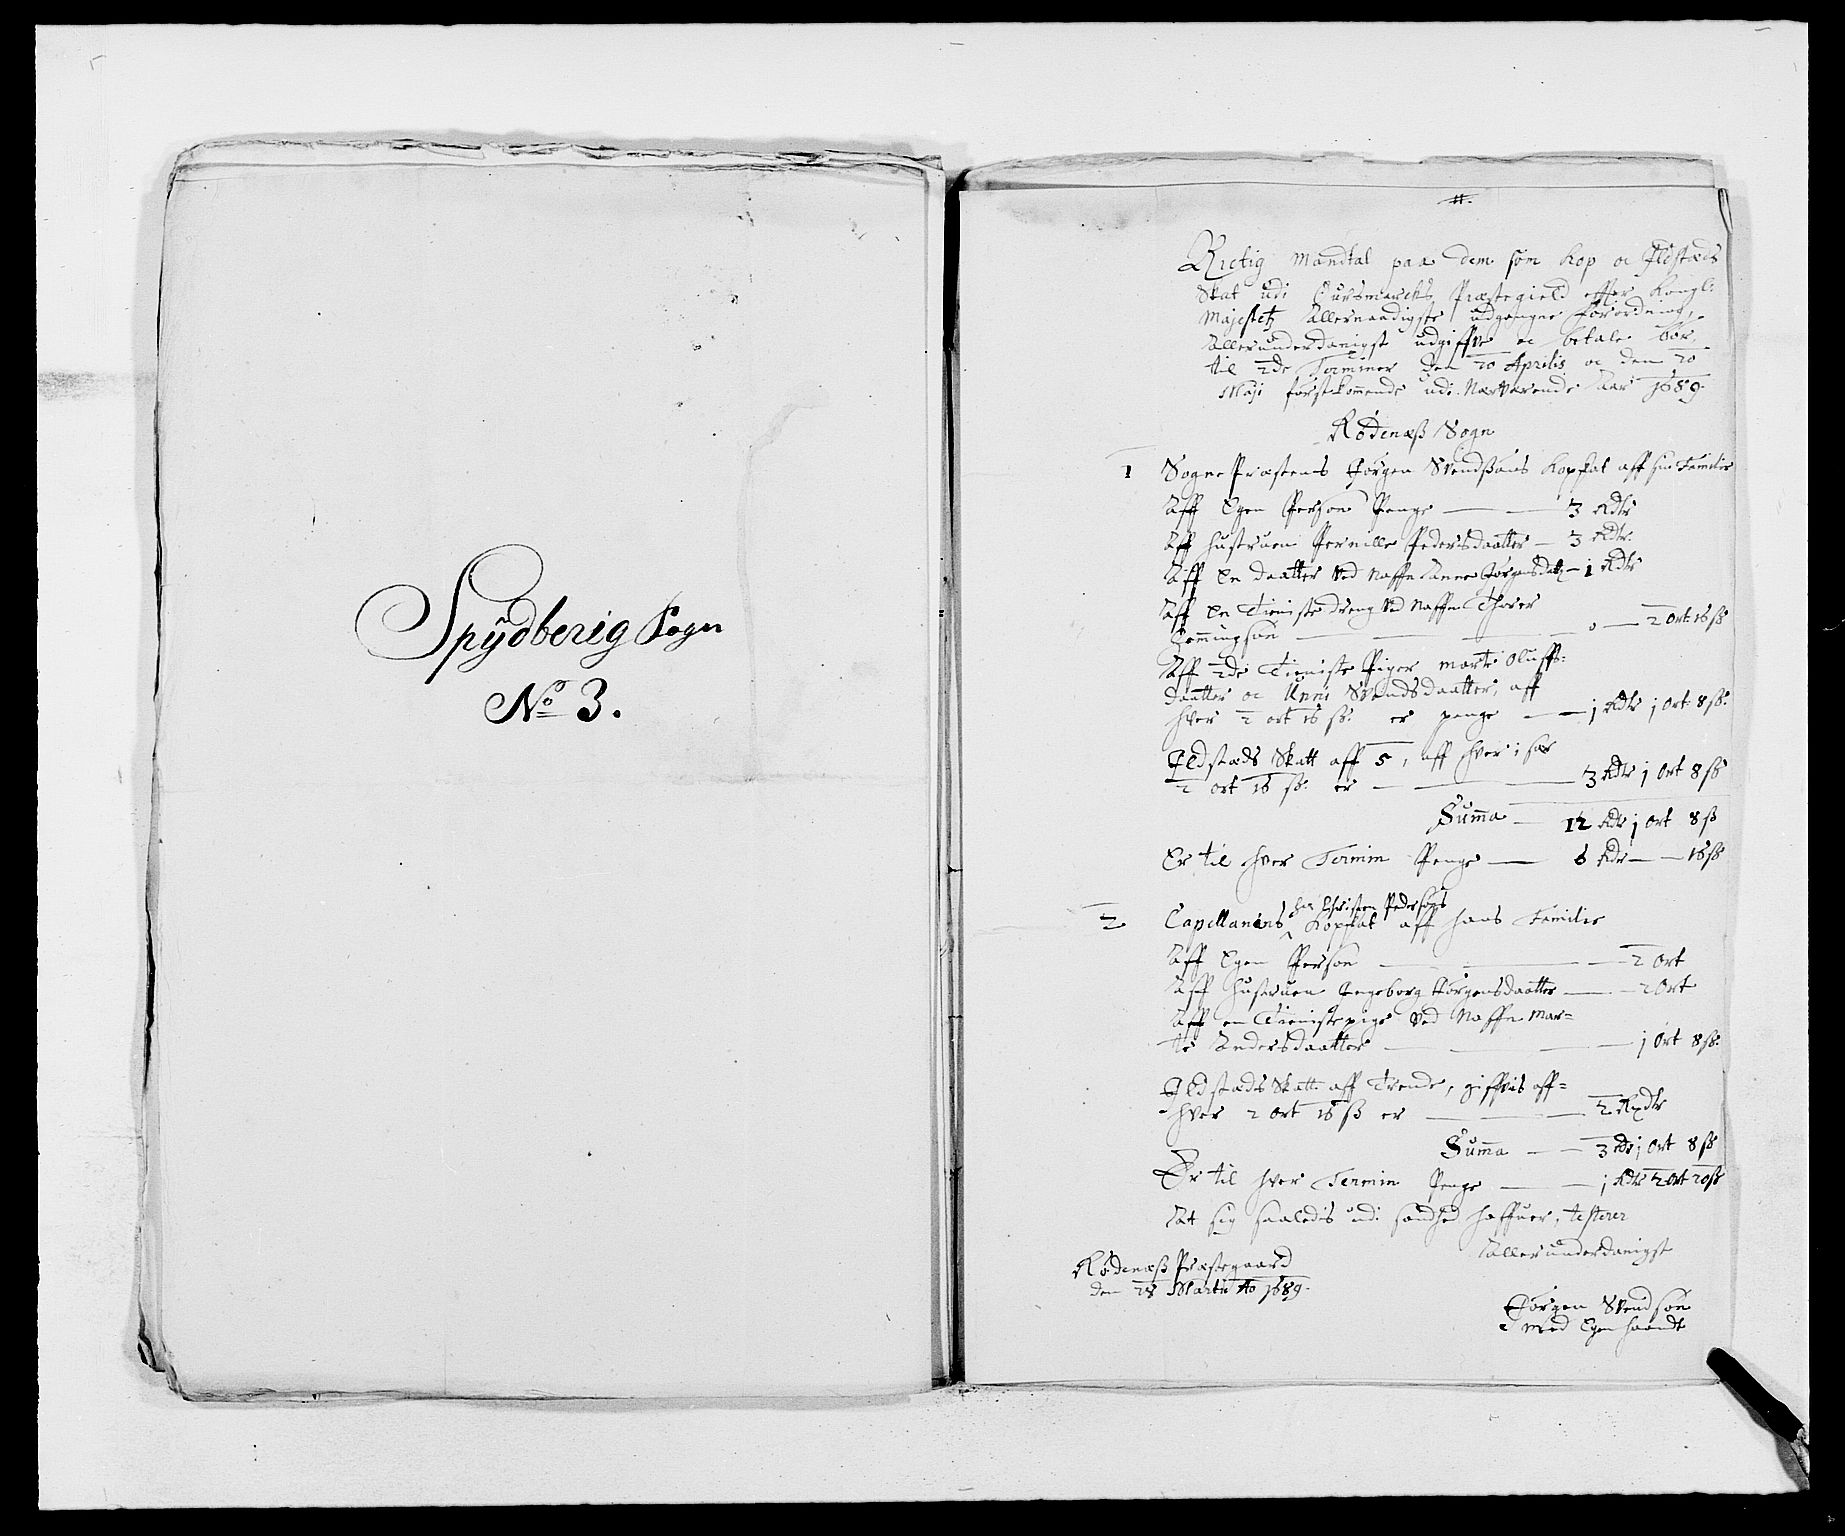 Spÿdberig Sogn
No 3.
#.
Rictig Mandtal paa dem som Kop oc Ildstæds
Skat udi Aursmarchs Præstegield effter Kongl:
Majestetz Allernaadigste udgangne forordning,
Allerunderdanigst udgiffve oc betale bør,
til 2de Terminer den 20 Aprilis oc den 20
Maji førstkommende udi Nærværende Aar 1689.
Rødenæß Sogn
1 SognePræstens Jørgen Svendßøns Kopskat aff sin Familie
Aff Egen Person Penge — 3 Rdlr
Aff hustruen Pernille Pedersdaatter — 3 Rdlr
Aff En daatter Ved Naffn Anne Jørgensdatr — 1 Rdlr
Aff En Tienistedreng Ved Naffn Thorer
Comingsøn — 0 — 2 Ort 16 sß
Aff 2de Tieniste Piger Marte Oluffs-
daatter oc Anne Svendsdaatter, aff
hver 2 ort 16 sß: er penge — 1 Rdlr 1 Ort 8 sß:
Ildstæds Skatt aff 5, aff hver især
2 ort 16 sß: er — 3 Rdlr 1 Ort 8 sß
Summa — 12 Rdlr 1 Ort 8 sß
Er til hver Termin Penge — 6 Rdr — 16 sß
2 Capellanens ^ Hr Christen Pedersøns Kopskat aff hans Familie
Aff Egen Person — 2 Ort
Aff hustruen Ingeborg Jørgensdaatter — 2 Ort
Aff en Tienistepige Ved Naffn Mar=
te Andersdaatter — 1 Ort 8 sß:
Ildstæds Skatt aff Trende, giffvis aff=
hver 2 Ort 16 sß er — 2 Rixdlr
Summa — 3 Rdr 1 Ort 8 sß
Er til hver Termin Penge — 1 Rdlr 2 Ort 20 sß
At sig saaledis udi sandhed haffuer, testerer
Allerunderdanigst
Rødenæß Præstegaard
den 28 Martii Ao 1689.
Jørgen Svendsøn
med Egen haandt